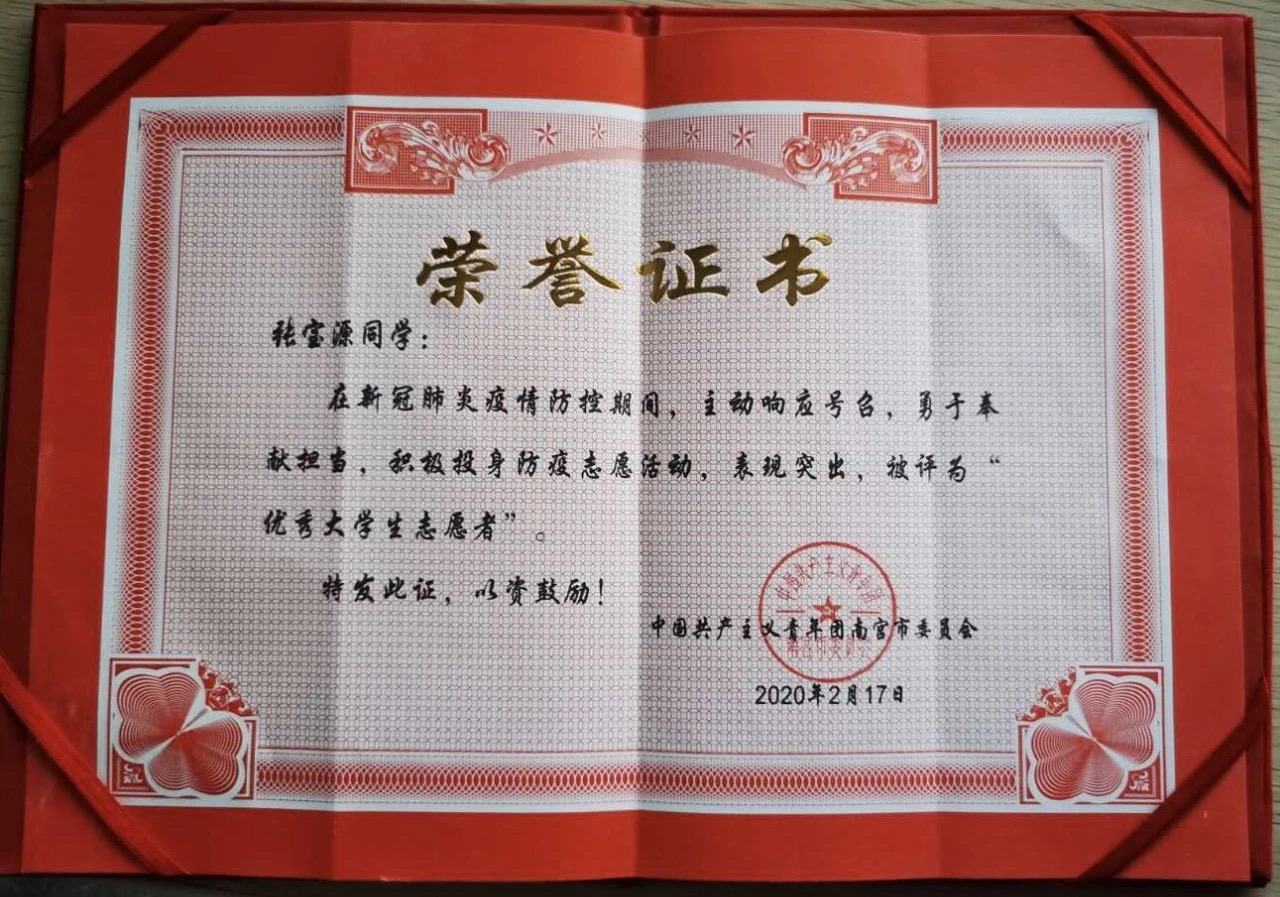 荣誉证书
张宝源同学：
在新冠肺炎疫情防控期间，主动响应号召，勇于奉
献担当，积极投身防疫志愿活动，表现突出，被评为“
优秀大学生志愿者”。
特发此证，以资鼓励！
中国共产主义青年团
中国共产主义青年团南宫市委员会
南宫市委员会
2020年2月17日